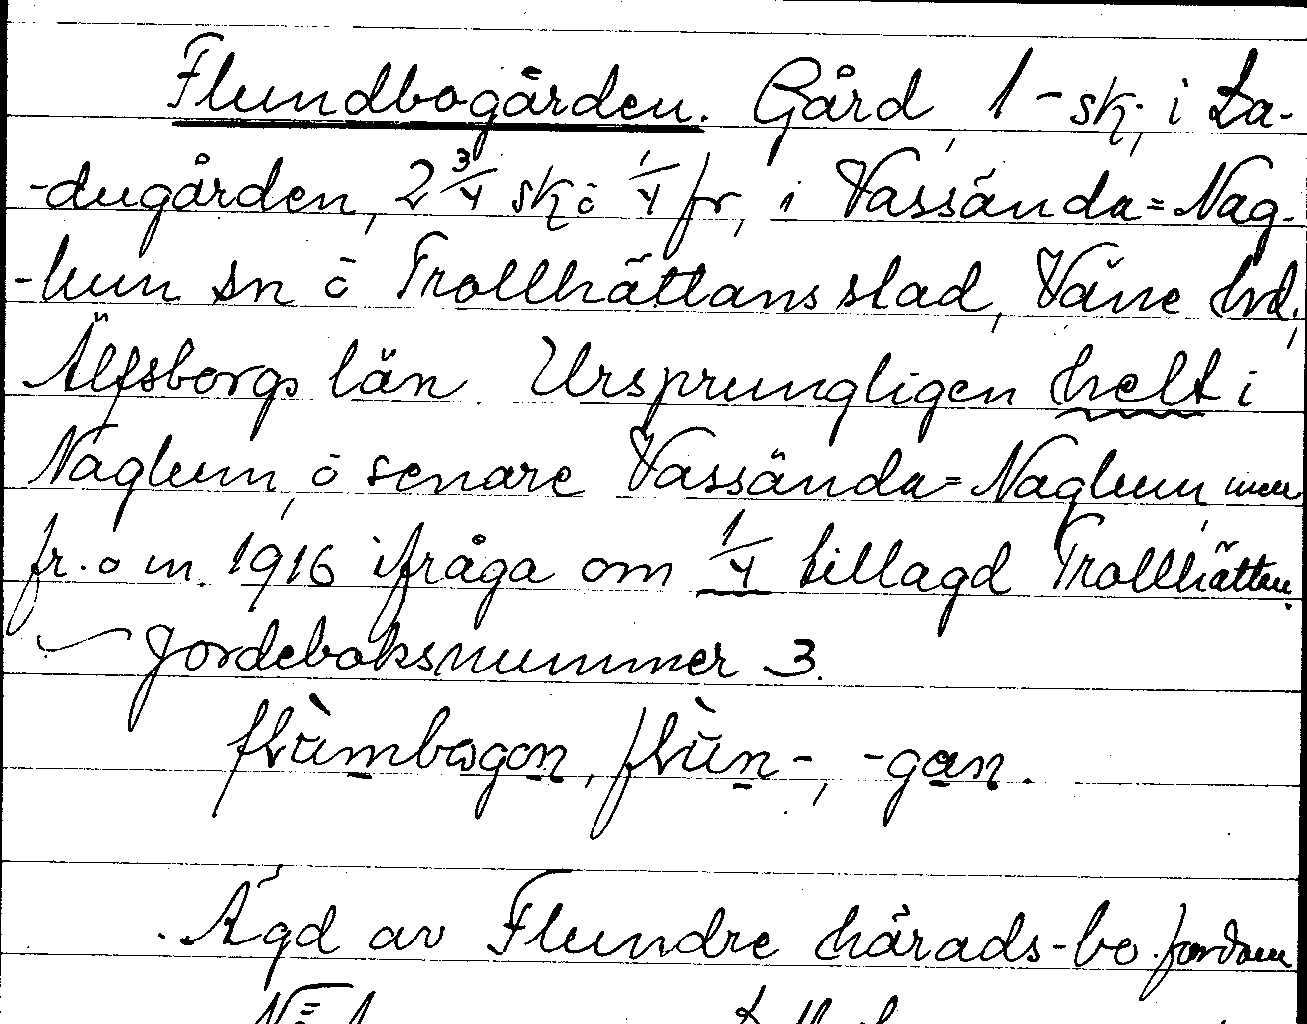 Flundbogården. Gård, 1 - sk., i La-
-dugården, 2 3/4 sk ō 1/4 fr, i Vassända=Nag-
-lum sn ō Trollhättans stad, Väne hd.,
Älfsborgs län. Ursprungligen helt i
Naglum, ō senare Vassända=Naglum, men
fr. o m. 1916 ifråga om 1/4 tillagd Trollhättan.
Jordeboksnummer 3.
-, -gan.
Ägd av Flundre härads-bo fordom